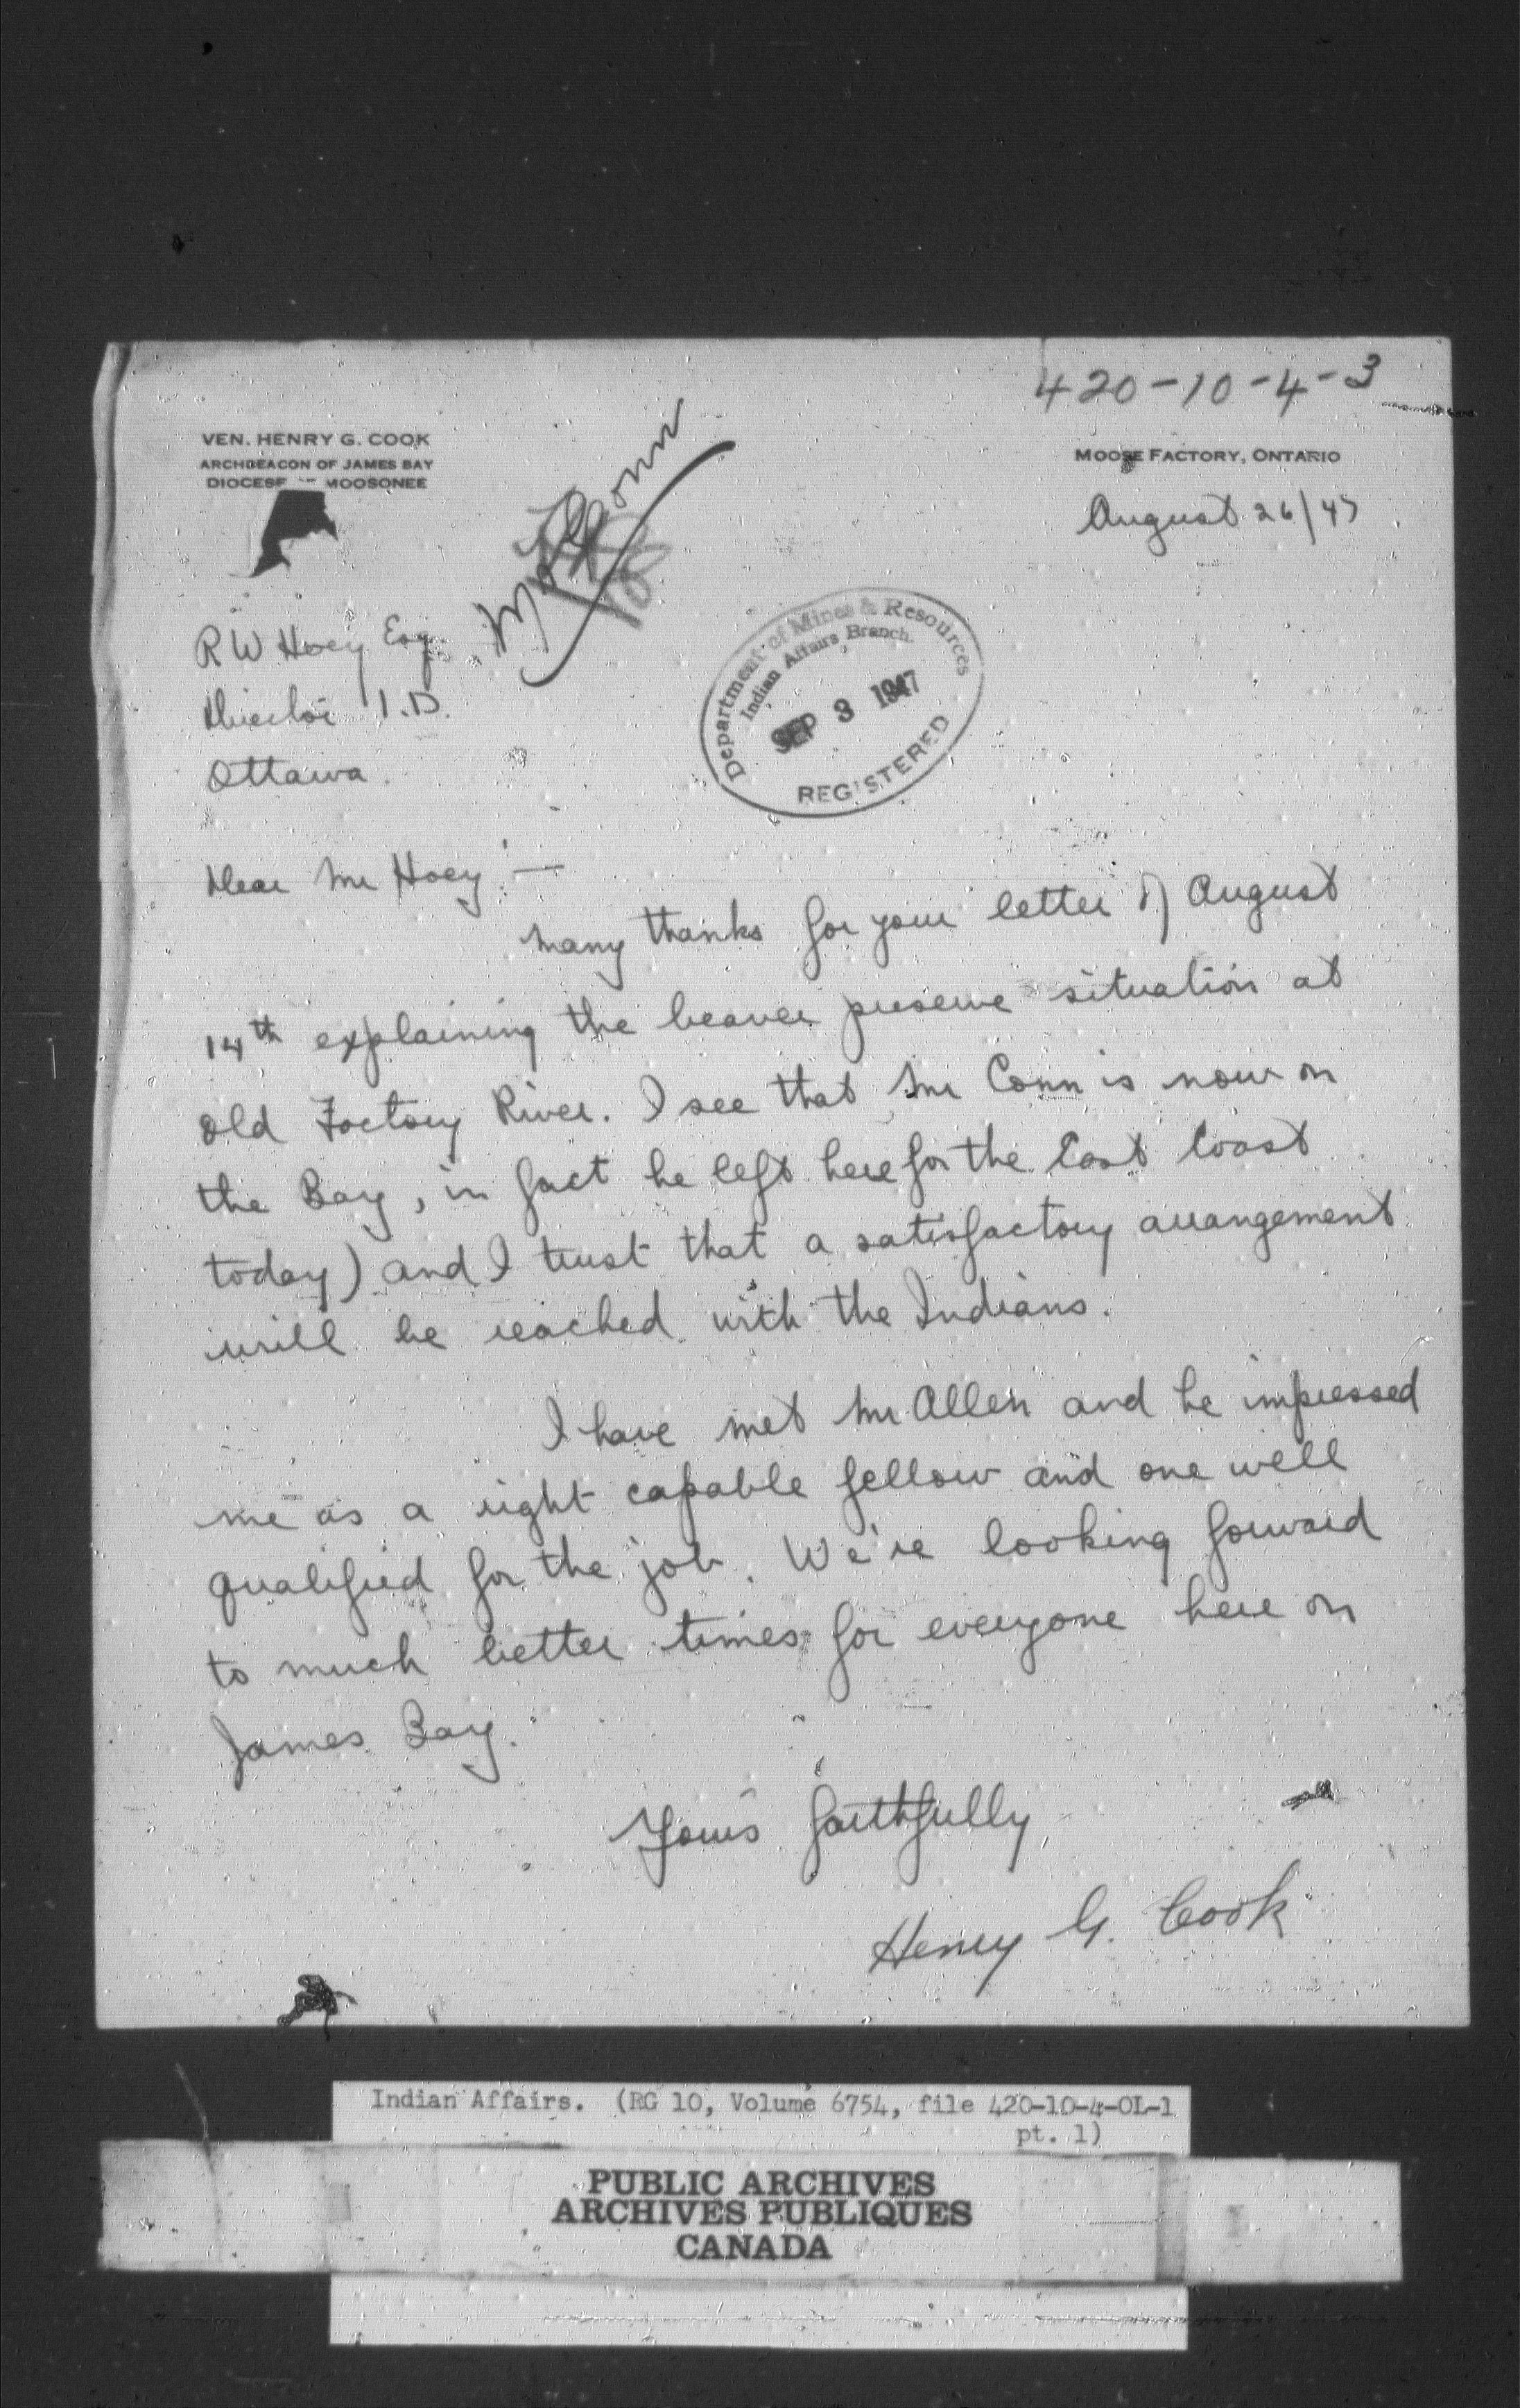 420-10-4-3
VEN. HENRY G. COOK
ARCHDEACON OF JAMES BAY
DIOCESE MOOSONEE
MOOSE FACTORY, ONTARIO
August 26/47
Mr Conn
R W Hoey Esq.
Director I.D.
Ottawa.
Department of Mines & Resources
Indian Affairs Branch.
SEP 3 1947
REGISTERED
Dear Mr Hoey:—
Many thanks for your letter of August
14th explaining the beaver preserve situation at
Old Factory River. I see that Mr Conn is now on
the Bay, in fact he left here for the East Coast
today) and I trust that a satisfactory arrangement
will be reached with the Indians.
I have met Mr Allen and he impressed
me as a right capable fellow and one well
qualified for the job. We're looking forward
to much better times for everyone here on
James Bay.
Yours faithfully
Henry G. Cook
Indian Affairs. (RG 10, Volume 6754, file 420-10-4-OL-1
pt. 1)
PUBLIC ARCHIVES
ARCHIVES PUBLIQUES
CANADA